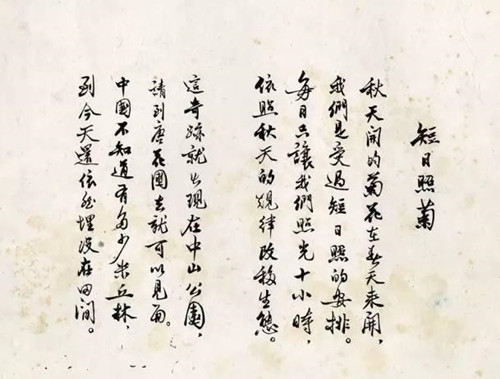 短日照菊
秋天開的菊花在春天来開，
我們是受過短日照的安排。
每日只讓我們照光十小時，
依照秋天的規律改移生態。
這奇跡就出現在中山公園，
請到唐花園去就可以見面。
中國不知道有多少米丘林，
到今天還依然埋没在田间。